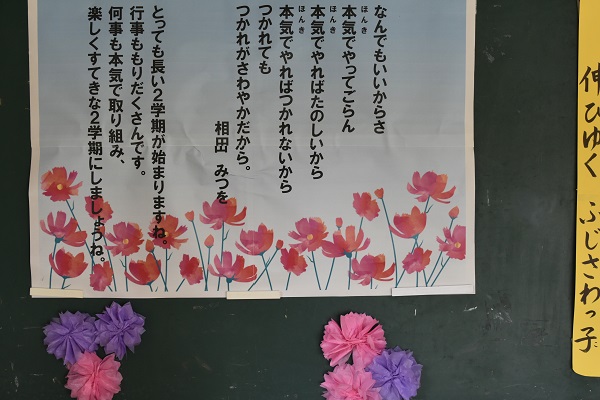 なんでもいいからさ
本気でやってごらん
本気でやればたのしいから
本気でやればつかれないから
つかれても
つかれがさわやかだから。
相田 みつを
とっても長い2学期が始まりますね。
行事ももりだくさんです。
何事も本気で取り組み、
楽しくすてきな2学期にしましょうね。
伸びゆく ふじさわっ子